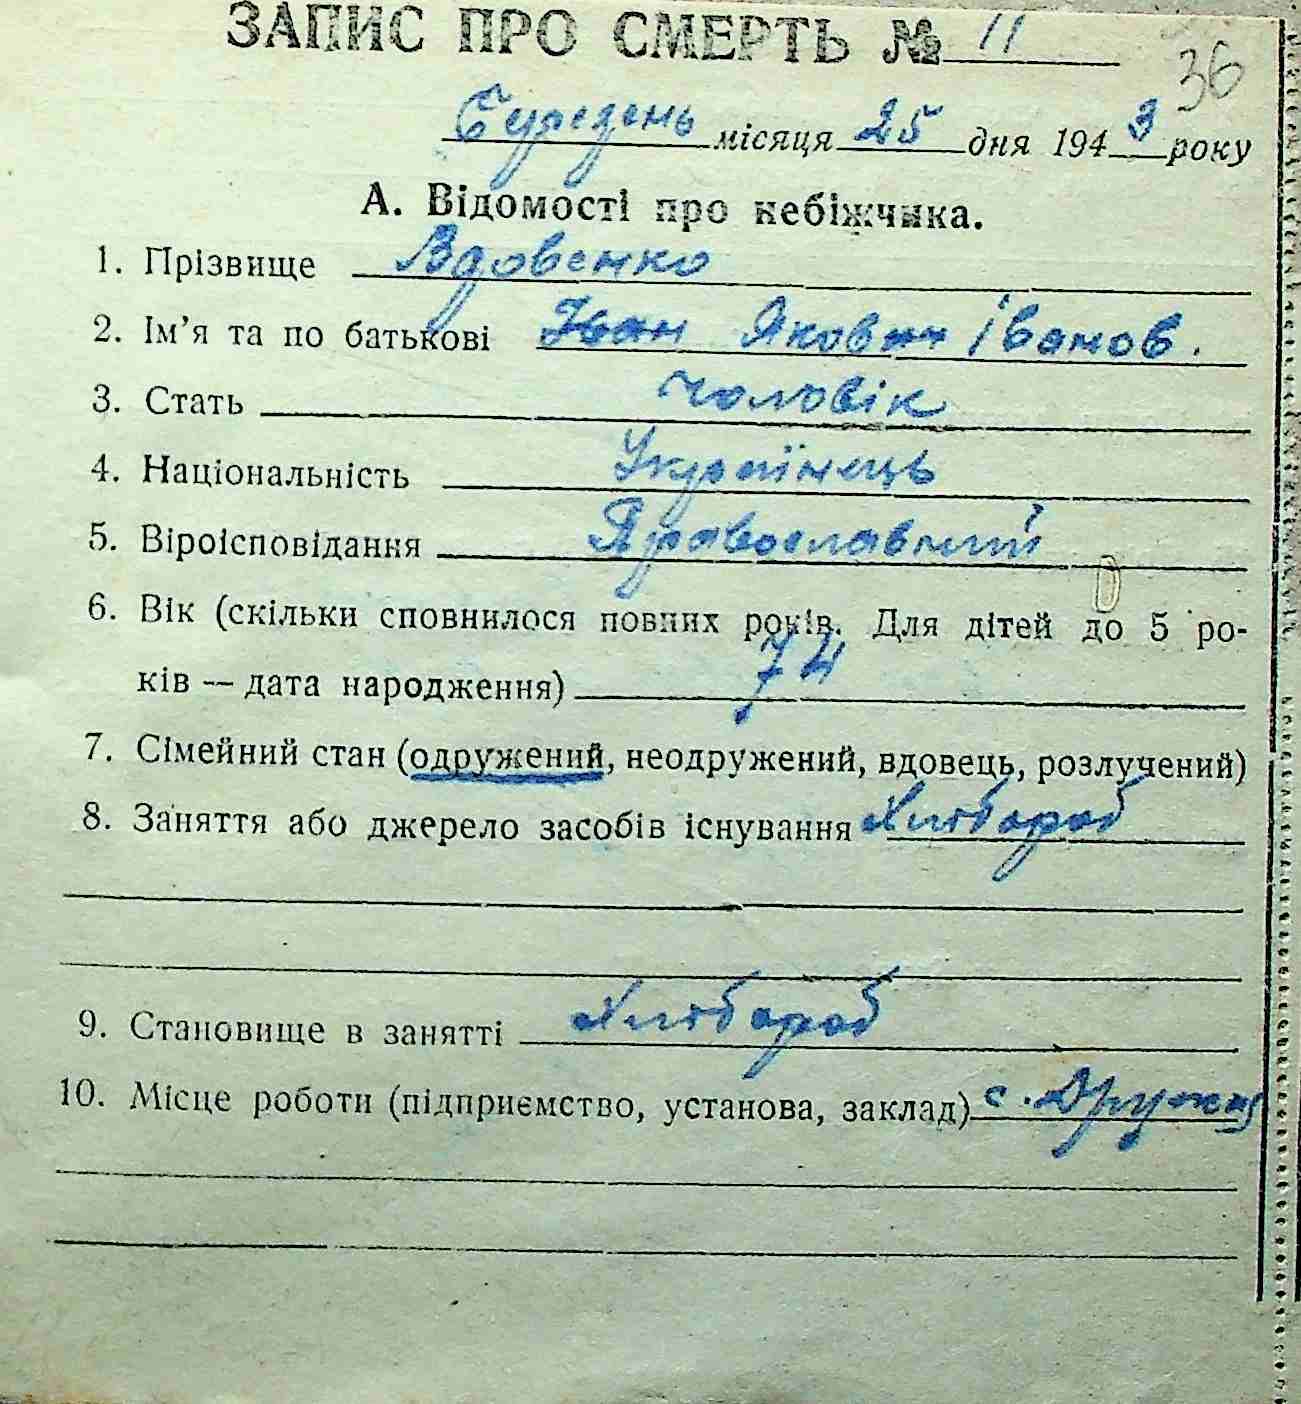 ЗАПИС ПРО СМЕРТЬ № 11
36
Середень місяця 25 дня 1943 року
А. Відомості про небіжчика.
1. Прізвище Вдовенко
2. Ім'я та по батькові Іван Якович Іванов.
3. Стать чоловік
4. Національність Українець
5. Віроісповідання Православний
6. Вік (скільки сповнилося повних років. Для дітей до 5 ро-
ків — дата народження) 74
7. Сімейний стан (одружений, неодружений, вдовець, розлучений)
8. Заняття або джерело засобів існування Хлібороб
9. Становище в занятті Хлібороб
10. Місце роботи (підприємство, установа, заклад) с.